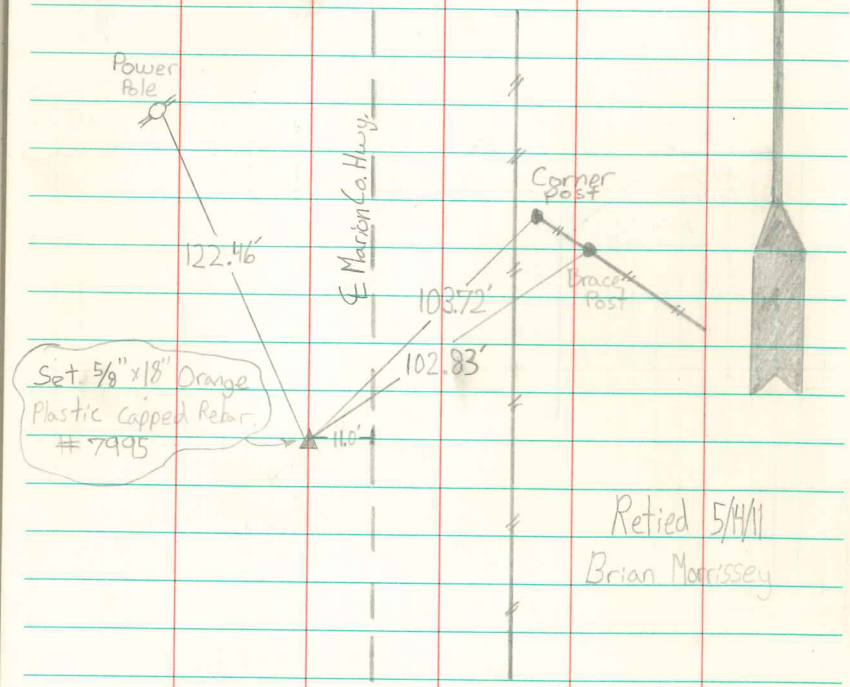 Power
Pole
℄ Marion Co. Hwy.
Corner
Post
122.46'
Brace
Post
103.72'
102.83'
Set 5/8" x 18" Orange
Plastic Capped Rebar.
# 7995
11.0'
Retied 5/14/11
Brian Morrissey